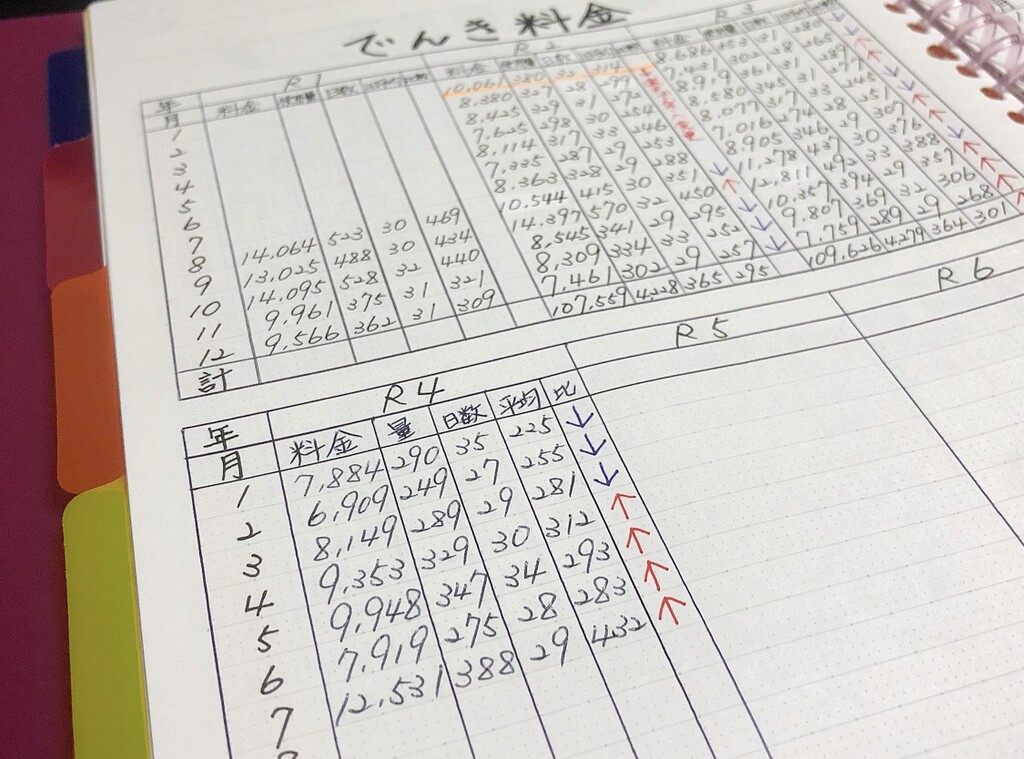 でんき料金
R1 R2 R3
年
月 料金 使用量 日数
1
2
3
4
5
6
7
8 14,064 523 30 469
9 13,025 488 30 434
10 14,095 528 32 440
11 9,961 375 31 321
12 9,566 362 31 309
計
料金 使用量 日数
10,061
8,380 327 28 277
8,425 329 31 272
7,625 298 30 254
8,114 317 33 246
7,335 287 29 253
8,363 328 29 288
10,544 415 30 351
14,397 570 32 450
8,545 341 29 295
8,309 334 33 252
7,461 302 29 257
107,559 4,228 365 295
料金
8,686 353 31
7,431
8,919 361 31
8,580 345 31
8,077 317 33
7,016 274 28 251
8,905 346 29 307
11,278 437 30 376
12,811 492 33 388
10,357 394 29 357
9,807 369 32 306
7,759 289 29 268
109,626 4,279 364 301
年 R4 R5 R6
月 料金 量 日数 平均 比
1 7,884 290 35 225 ↓
2 6,909 249 27 255 ↓
3 8,149 289 29 281 ↓
4 9,353 329 30 312 ↑
5 9,948 347 34 293 ↑
6 7,919 275 28 283 ↑
7 12,531 388 29 432 ↑